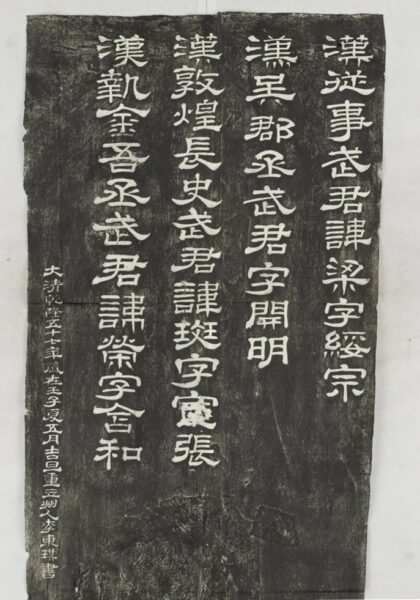 漢從事武君諱梁字綏宗
漢吳郡丞武君字開明
漢敦煌長史武君諱斑字宣張
漢執金吾丞武君諱榮字含和
大清乾隆五十七年歲在壬子夏五月吉旦重立州人李東琪書